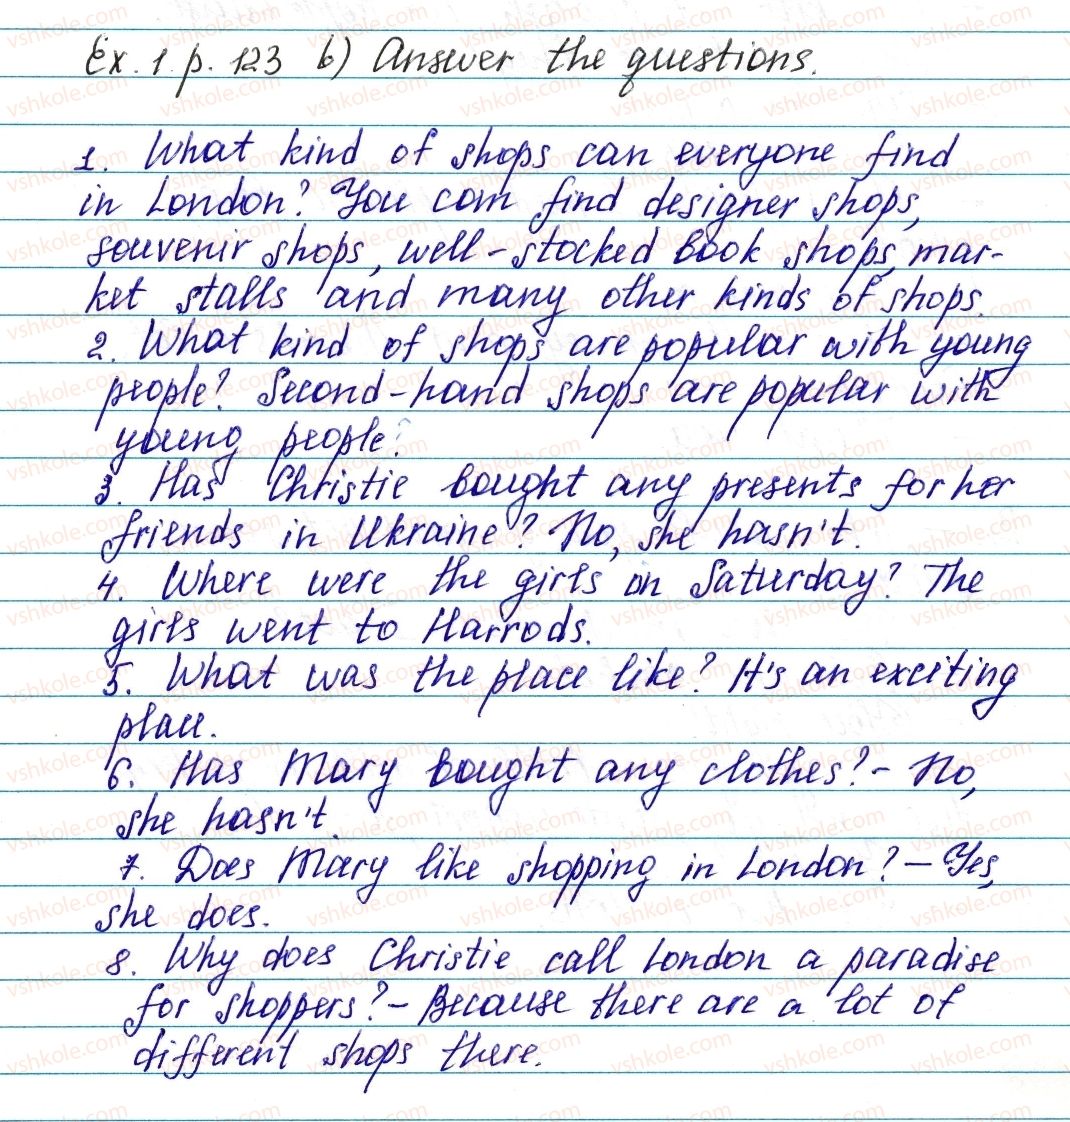 Ex. 1 p. 123 b) Answer the questions.
1. What kind of shops can everyone find
in London? You can find designer shops,
souvenir shops, well-stocked book shops, mar-
ket stalls and many other kinds of shops.
2. What kind of shops are popular with young
people? Second-hand shops are popular with
young people?
3. Has Christie bought any presents for her
friends in Ukraine? No, she hasn't.
4. Where were the girls on Saturday? The
girls went to Harrods.
5. What was the place like? It's an exciting
place.
6. Has Mary bought any clothes? - No,
she hasn't.
7. Does Mary like shopping in London? - Yes,
she does.
8. Why does Christie call London a paradise
for shoppers? - Because there are a lot of
different shops there.
vshkole.com